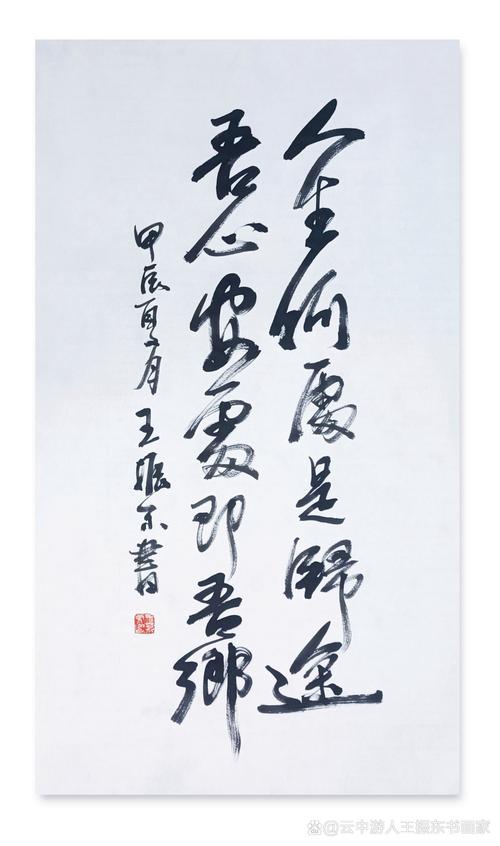 人生何處是歸途
吾心安處即吾鄉
甲辰夏月王振东書
@云中游人王振东书画家